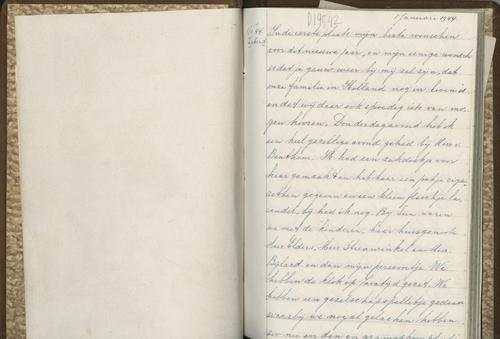 D19542
1 Januari 1944.
In de eerste plaats mijn beste wenschen
voor dit nieuwe jaar, en mijn eenige wensch
is dat je gauw weer bij mij zal zijn, dat
onze familie in Holland nog in leven is
en dat wij daar ook spoedig iets van mo-
gen hooren. Donderdagavond heb ik
een heel gezellige avond gehad bij
Benthem. Ik had een zakdoekje voor
haar gemaakt en het haar een pakje ciga-
retten gegeven en een klein fleschje la-
vendel, bij had ik nog. Bij waren
nu met de kinderen, haar huisgenoote
Mevr. Elders, Mevr. Steenwinkel en Mevr.
Bijlard en dan mijn persoontje. We
hebben de klok op jaartijd gezet. We
hebben een gezelschapsspelletje gedaan
waarbij we nogal gelachen hebben